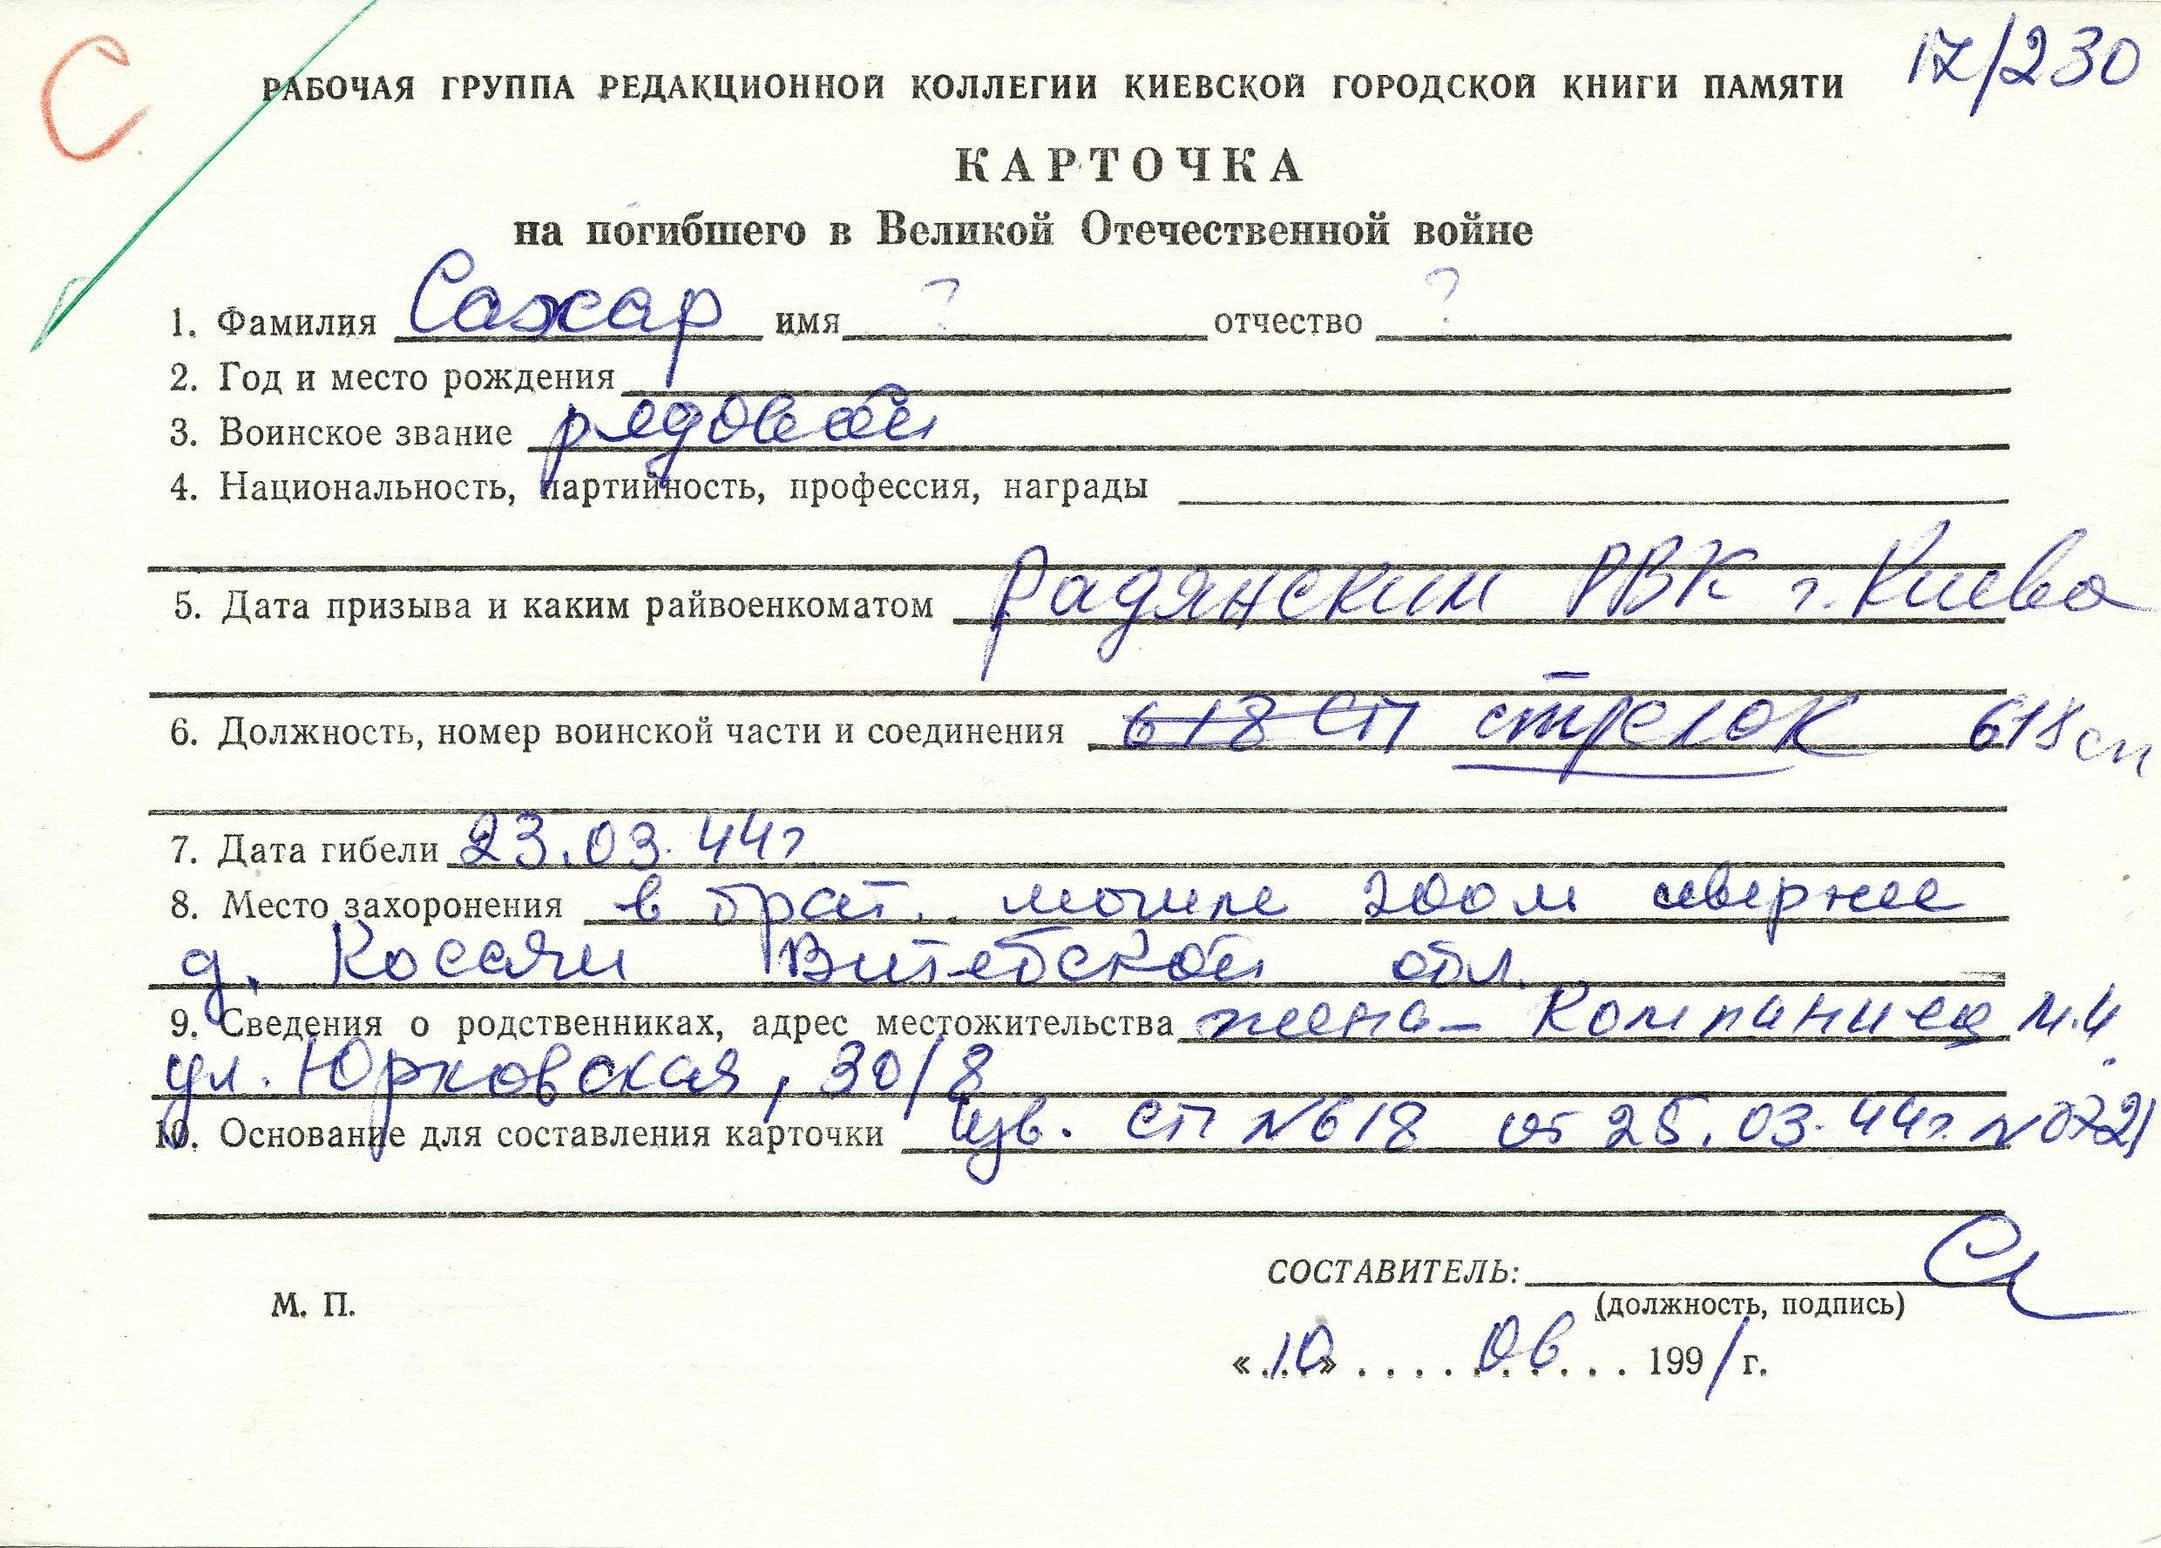 С
17/230
РАБОЧАЯ ГРУППА РЕДАКЦИОННОЙ КОЛЛЕГИИ КИЕВСКОЙ ГОРОДСКОЙ КНИГИ ПАМЯТИ
КАРТОЧКА
на погибшего в Великой Отечественной войне
1. Фамилия Сахар имя ? отчество ?
2. Год и место рождения
3. Воинское звание рядовой
4. Национальность, партийность, профессия, награды
5. Дата призыва и каким райвоенкоматом Радянским РВК г. Киева
6. Должность, номер воинской части и соединения 618 СП стрелок 618 сп
7. Дата гибели 23.03.44г.
8. Место захоронения в брат. могиле 200 м севернее
д. Косачи Витебской обл.
9. Сведения о родственниках, адрес местожительства жена – Компаниец М.И.
ул. Юрковская, 30/8
10. Основание для составления карточки изв. СП №618 от 25.03.44г. №
СОСТАВИТЕЛЬ:
М. П.
(должность, подпись)
«10» 06 1991 г.